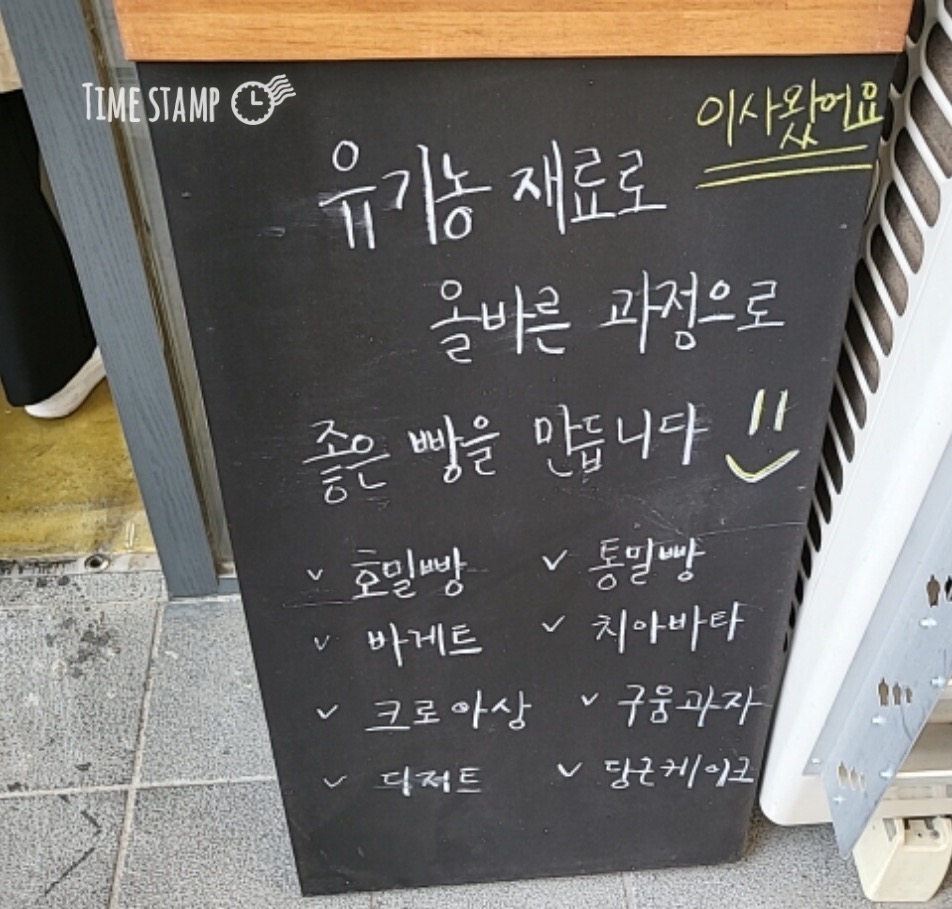 TIME STAMP
이사왔어요
유기농 재료로
올바른 과정으로
좋은 빵을 만듭니다
✓ 호밀빵 ✓ 통밀빵
✓ 바게트 ✓ 치아바타
✓ 크로아상 ✓ 구움과자
✓ 디저트 ✓ 당근케이크